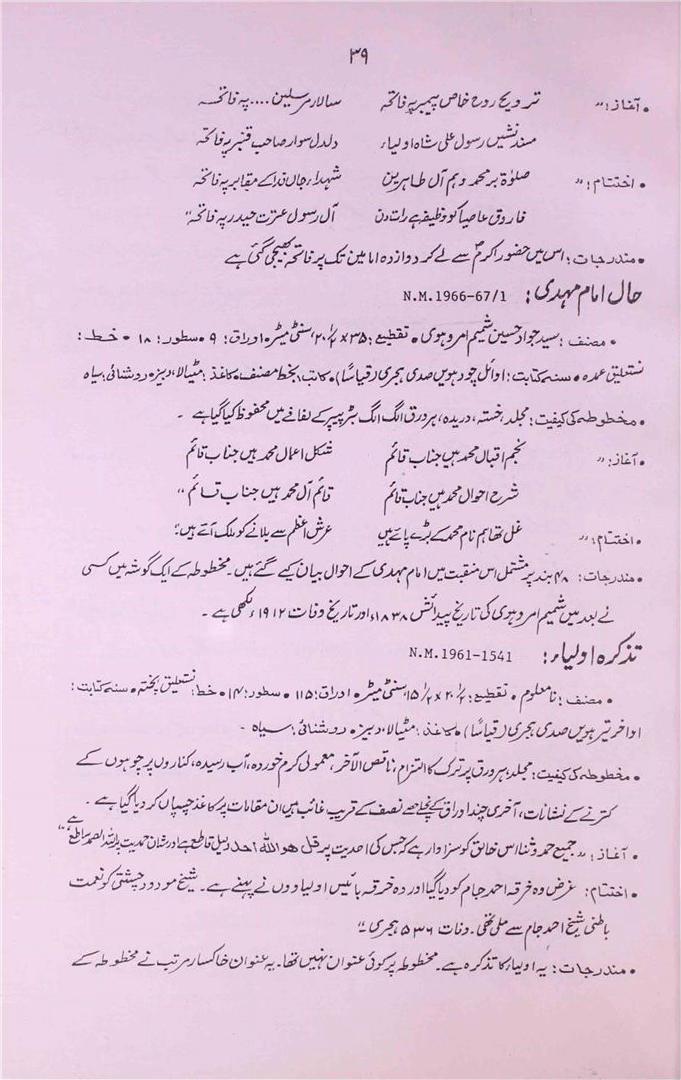 ۳۹
• آغاز: "     ترویح روح خاص پیمبر پہ فاتحہ     سالار مرسلین .... پہ فاتحہ
مسند نشیں رسول علی شاہ اولیاء     دلدل سوار صاحب قنبر پہ فاتحہ
• اختتام: "     صلوٰۃ بر محمد و ہم آل طاہرین     شہداء جاں نذا کے مقابر پہ فاتحہ
فاروق عاصیا کو وظیفہ ہے رات دن     آل رسول عزت حیدر پہ فاتحہ"
• مندرجات: اس میں حضور اکرمؐ سے لے کر دوازدہ امامین تک پر فاتحہ بھیجی گئی ہے
حال امام مہدی: N.M.1966-67/1
• مصنف: سید جواد حسین شمیم امروہوی • تقطیع: ۳۵ × ۲۰،۱/۲ سنٹی میٹر • اوراق: ۹ • سطور: ۱۸ • خط:
نستعلیق عمدہ • سنہ کتابت: اوائل چودہویں صدی ہجری (قیاساً) • کاتب: بخط مصنف • کاغذ: مٹیالا، دبیز • روشنائی: سیاہ
• مخطوطہ کی کیفیت: مجلد، خستہ، دریدہ، ہر ورق الگ الگ بٹر پیپر کے لفافے میں محفوظ کیا گیا ہے ۔
• آغاز: "     نجم اقبال محمد ہیں جناب قائم     شکل اعمال محمد ہیں جناب قائم
شرح احوال محمد ہیں جناب قائم     قائم آل محمد ہیں جناب قائم"
• اختتام: "     غل تھا ہم نام محمد کے بڑے پائے ہیں     عرش اعظم سے بلانے کو ملک آتے ہیں"
• مندرجات: ۴۸ بند پر مشتمل اس منقبت میں امام مہدی کے احوال بیان کیے گئے ہیں۔ مخطوطہ کے ایک گوشہ میں کسی
نے بعد میں شمیم امروہوی کی تاریخ پیدائش ۱۸۳۸ء اور تاریخ وفات ۱۹۱۲ء لکھی ہے ۔
تذکرہ اولیاء: N.M.1961-1541
• مصنف: نامعلوم • تقطیع: ۲۰،۱/۲ × ۱۵،۱/۲ سنٹی میٹر • اوراق: ۱۱۵ • سطور: ۱۴ • خط: نستعلیق پختہ • سنہ کتابت:
اواخر تیرہویں صدی ہجری (قیاساً) • کاغذ: مٹیالا، دبیز • روشنائی: سیاہ ۔
• مخطوطہ کی کیفیت: مجلد، ہر ورق پر ترک کا التزام، ناقص الآخر، معمولی کرم خوردہ، آب رسیدہ، کناروں پر چوہوں کے
کترنے کے نشانات، آخری چند اوراق کے نچلے حصے نصف کے قریب غائب ہیں ان مقامات پر کاغذ چسپاں کر دیا گیا ہے ۔
• آغاز: "جمیع حمد و ثنا اس خالق کو سزاوار ہے کہ جس کی احدیت پر قل ھو اللہ احد دلیل قاطع ہے اور شان حمدیت پر اللہ الصمد ساطع ہے"
• اختتام: غرض وہ خرقہ احمد جام کو دیا گیا اور وہ خرقہ بائیس اولیاووں نے پہنے ہے۔ شیخ مودود چشتی کو نعمت
باطنی شیخ احمد جام سے ملی تھی۔ وفات ۵۳۶ ہجری ۔"
• مندرجات: یہ اولیاء کا تذکرہ ہے۔ مخطوطہ پر کوئی عنوان نہیں تھا۔ یہ عنوان خاکسار مرتب نے مخطوطہ کے